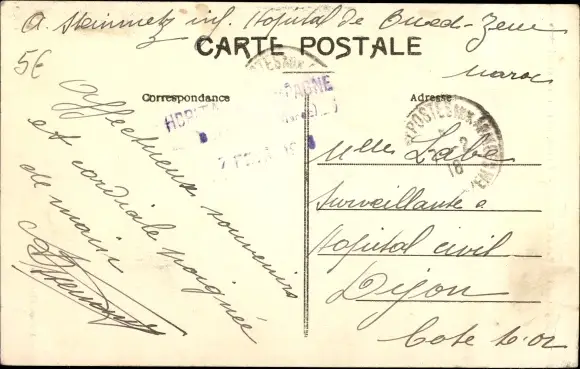 A. Steinmetz inf. Hopital de Oued-Zem
Maroc
5€
CARTE POSTALE
Correspondance
Adresse
HOPITAL CAMPAGNE
7 FEV
POSTES AUX ARMEES
18
Affectueux souvenirs
et cordiale poignée
de main
A Steinmetz
Melle Labe
Surveillante a
Hopital civil
Dijon
Cote d'or